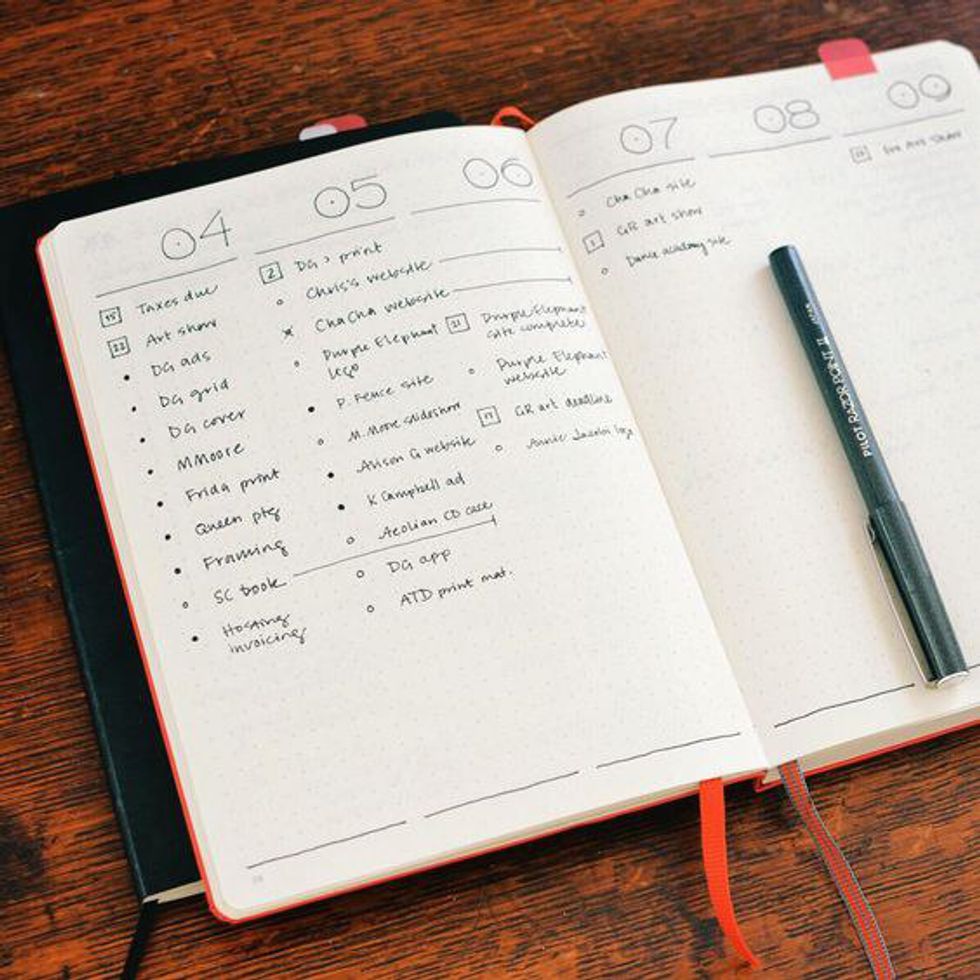 04
15 Taxes due
22 Art show
• DG ads
• DG grid
• DG cover
• MMoore
• Frida print
• Queen ptg
• Framing
○ SC book
• Hosting
invoicing
05
2 DG > print
○ Chris's website
× ChaCha website
○ Purple Elephant
logo
• P. Fence site
○ M. Moore slideshow
• Alison G website
• K Campbell ad
○ Aeolian CD case
○ DG app
○ ATD print mat.
06
21 Purple Elephant
site complete
○ Purple Elephant
website
GR art deadline
○ Annie Jacobs logo
07
○ Cha Cha site
1 GR art show
○ Dance academy site
08
09
Art show
PILOT RAZOR POINT II